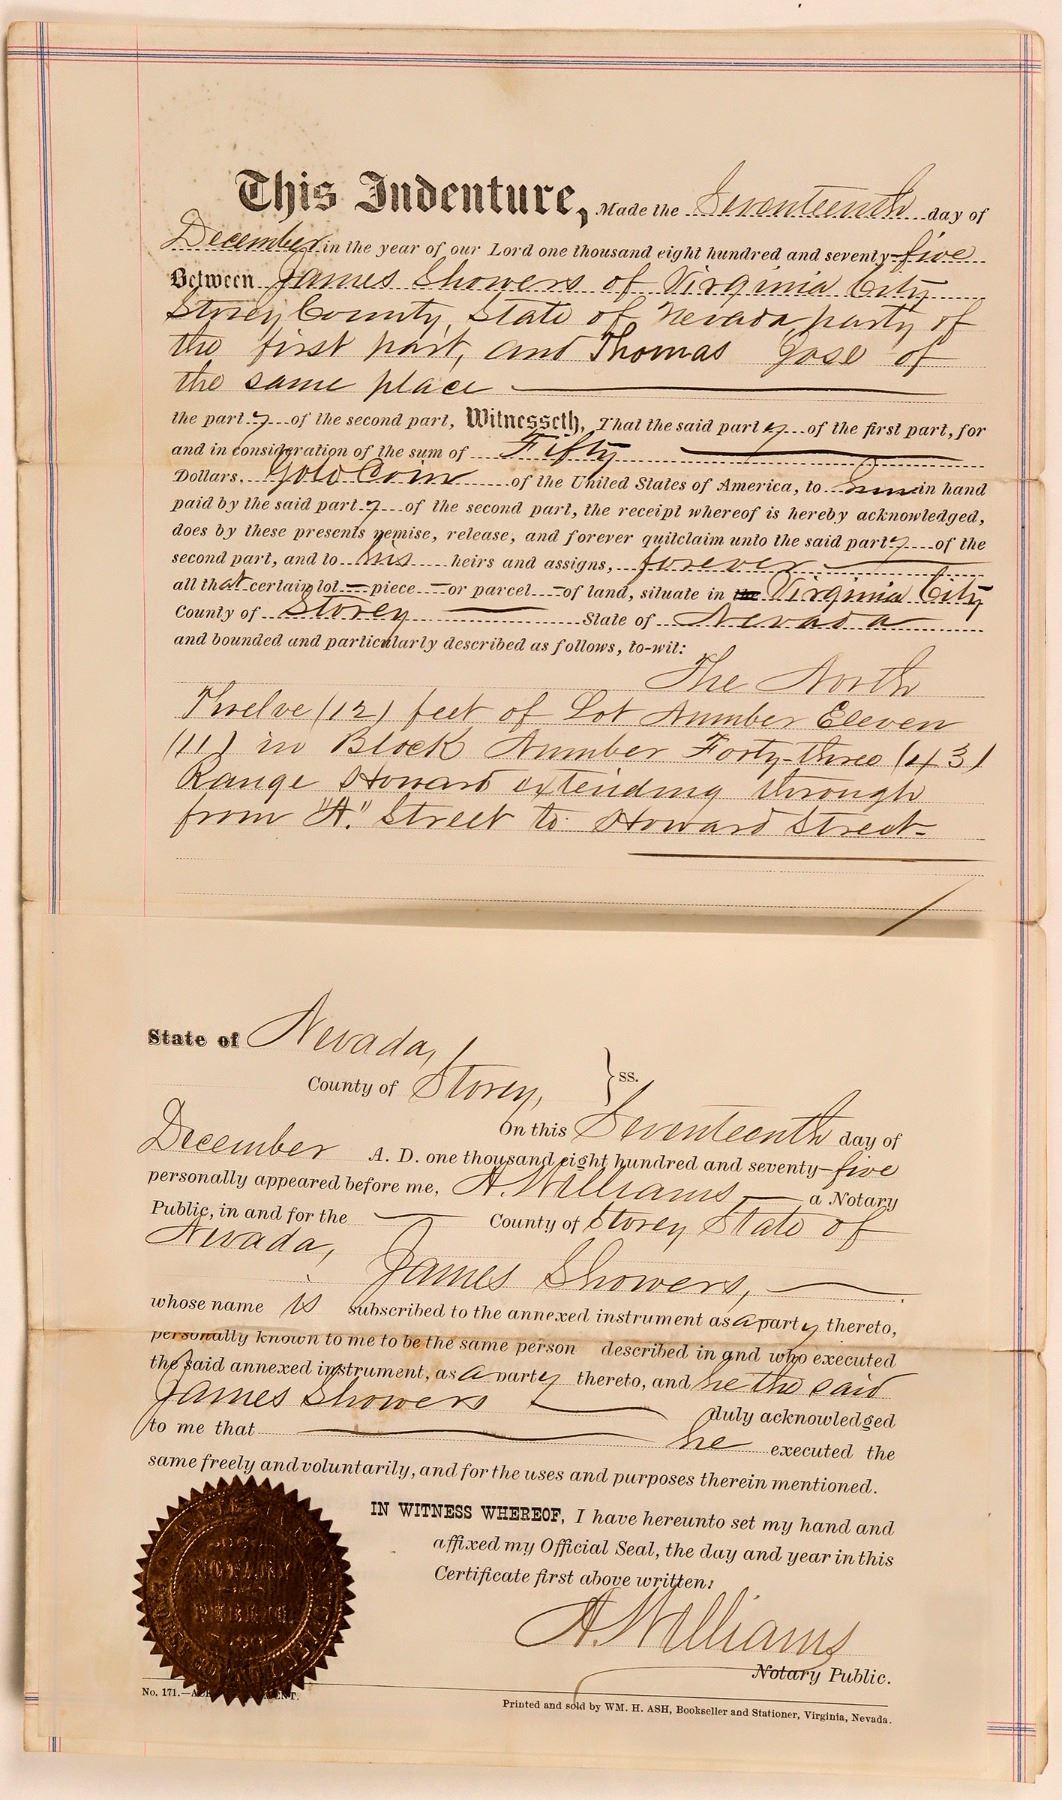 This Indenture, Made the Seventeenth day of
December in the year of our Lord one thousand eight hundred and seventy-five
Between James Showers of Virginia City
Storey County, State of Nevada, party of
the first part, and Thomas Jose of
the same place
the party of the second part, Witnesseth, That the said party of the first part, for
and in consideration of the sum of Fifty
Dollars, Gold Coin of the United States of America, to him in hand
paid by the said party of the second part, the receipt whereof is hereby acknowledged,
does by these presents remise, release, and forever quitclaim unto the said party of the
second part, and to his heirs and assigns, forever
all that certain lot piece or parcel of land, situate in the Virginia City
County of Storey State of Nevada
and bounded and particularly described as follows, to-wit:
The North
Twelve (12) feet of Lot Number Eleven
(11) in Block Number Forty-three (43)
Range Howard extending through
from "A." Street to Howard Street-
State of Nevada,
County of Storey, } ss.
On this Seventeenth day of
December A. D. one thousand eight hundred and seventy-five
personally appeared before me, A. Williams a Notary
Public, in and for the County of Storey State of
Nevada,
James Showers,
whose name is subscribed to the annexed instrument as a party thereto,
personally known to me to be the same person described in and who executed
the said annexed instrument, as a party thereto, and he the said
James Showers duly acknowledged
to me that he executed the
same freely and voluntarily, and for the uses and purposes therein mentioned.
IN WITNESS WHEREOF, I have hereunto set my hand and
affixed my Official Seal, the day and year in this
Certificate first above written:
A. Williams
Notary Public.
NOTARY
PUBLIC
No. 171.—
Printed and sold by WM. H. ASH, Bookseller and Stationer, Virginia, Nevada.